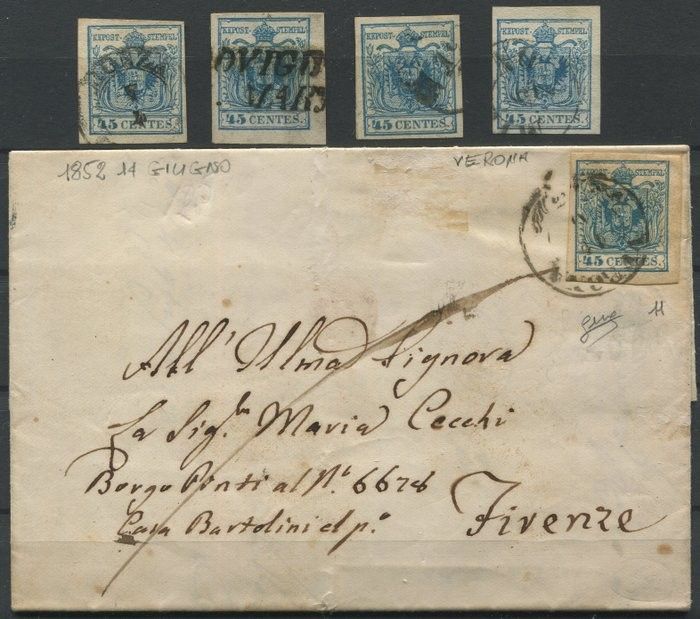 KKPOST-STEMPEL
45 CENTES.
MONZA
KKPOST-STEMPEL
45 CENTES.
OVIGO
MAR
KKPOST-STEMPEL
45 CENTES.
KKPOST-STEMPEL
45 CENTES.
1852 11 GIUGNO
VERONA
KKPOST-STEMPEL
45 CENTES.
11
All' Illma Signora
La Sig.ra Maria Cecchi
Borgo Pinti al N.o 6678
Casa Bartolini 2.l p.o
Firenze